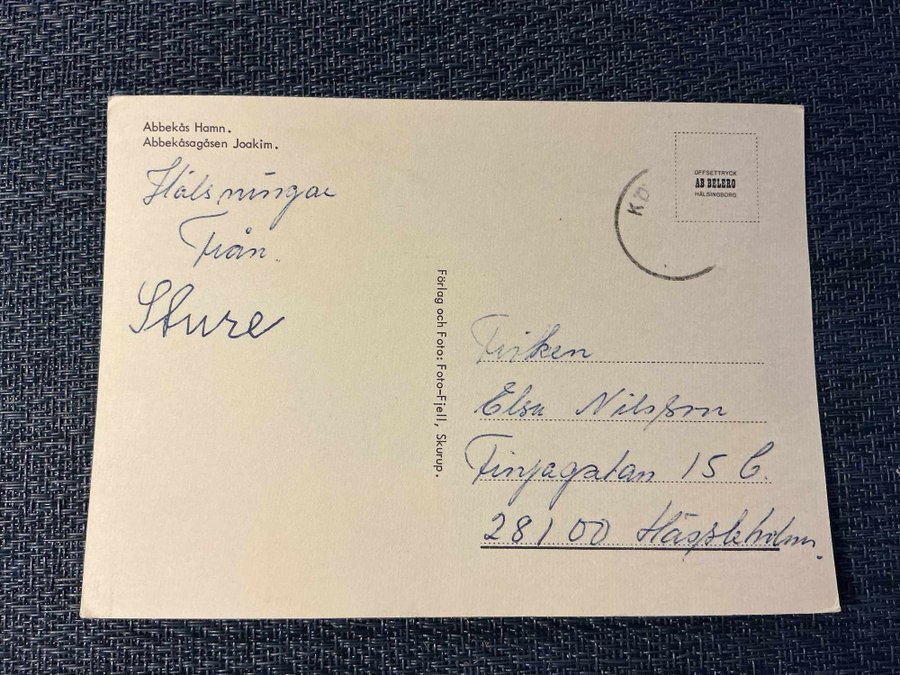 Abbekås Hamn.
Abbekåsagåsen Joakim.
Hälsningar
Från
Sture
OFFSETTRYCK
AB BELERO
HÄLSINGBORG
Förlag och Foto: Foto-Fjell, Skurup.
Fröken
Elsa Nilsson
Finjagatan 15 C.
281 00 Hässleholm.